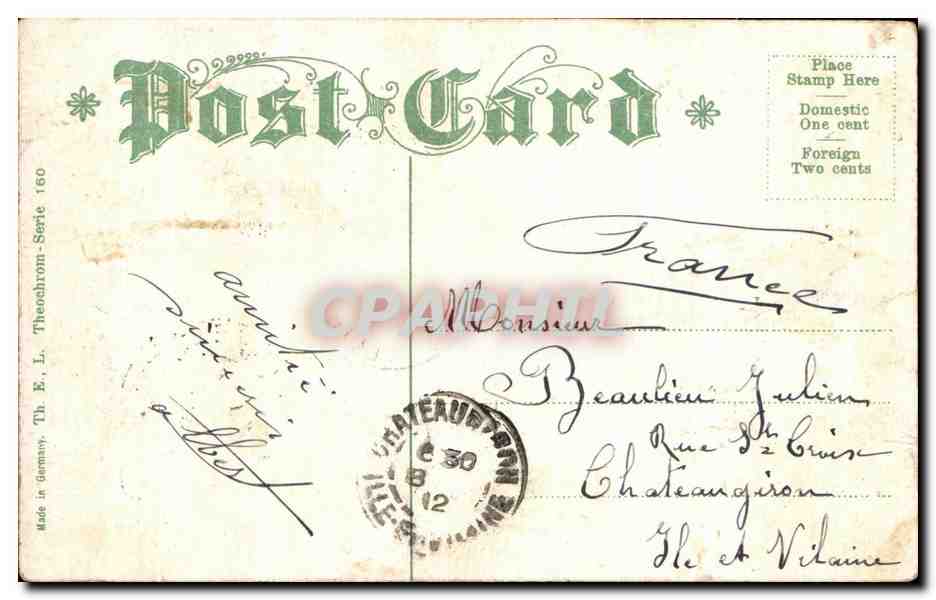 Post Card
Place
Stamp Here
Domestic
One cent
Foreign
Two cents
France
Monsieur
Beaulieu Julien
Rue Ste Croix
Chateaugiron
Ile et Vilaine
amitié
CPAPHIL
CHATEAUGIRON
6 30
8
12
ILLE-ET-VILAINE
Made in Germany. Th. E., L. Theochrom-Serie 160